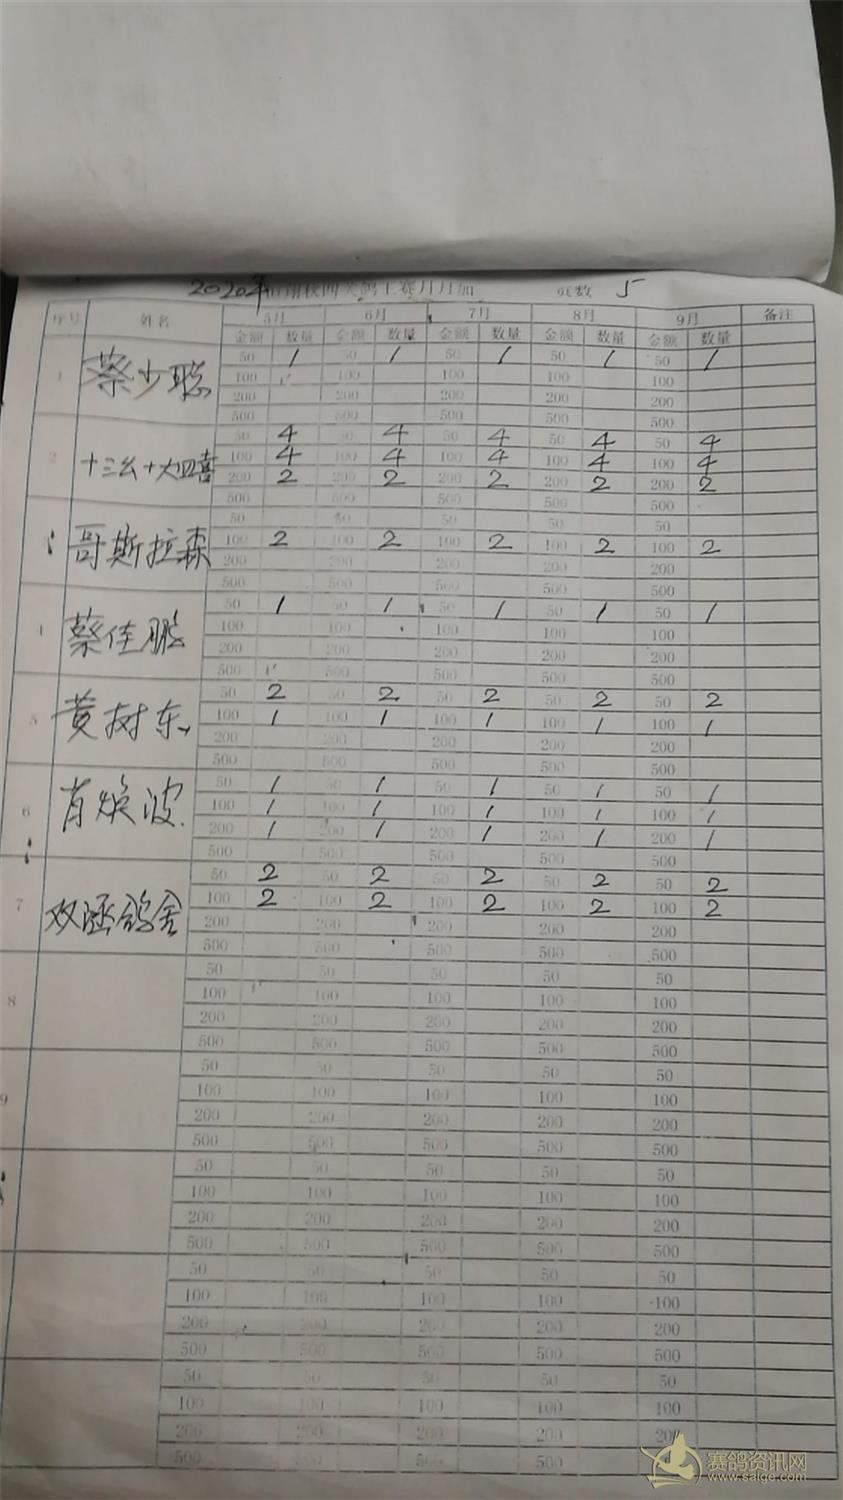 2020年 翔秋四关鸽王赛月月加 页数 5
序号 姓名 5月 6月 7月 8月 9月 备注
金额 数量 金额 数量 金额 数量 金额 数量 金额 数量
1 蔡少聪 50 1 50 1 50 1 50 1 50 1
100 100 100 100 100
200 200 200 200 200
500 500 500 500 500
2 十三幺十大四喜 50 4 50 4 50 4 50 4 50 4
100 4 100 4 100 4 100 4 100 4
200 2 200 2 200 2 200 2 200 2
500 500 500 500 500
哥斯拉森 50 50 50 50 50
100 2 100 2 100 2 100 2 100 2
200 200 200 200 200
500 500 500 500 500
4 蔡佳鹏 50 1 50 1 50 1 50 1 50 1
100 100 100 100 100
200 200 200 200 200
500 500 500 500 500
5 黄树东 50 2 50 2 50 2 50 2 50 2
100 1 100 1 100 1 100 1 100 1
200 200 200 200 200
500 500 500 500 500
6 肖焕波 50 1 50 1 50 1 50 1 50 1
100 1 100 1 100 1 100 1 100 1
200 1 200 1 200 1 200 1 200 1
500 500 500 500 500
7 双 鸽舍 50 2 50 2 50 2 50 2 50 2
100 2 100 2 100 2 100 2 100 2
200 200 200 200 200
500 500 500 500 500
8 50 50 50 50 50
100 100 100 100 100
200 200 200 200 200
500 500 500 500 500
9 50 50 50 50 50
100 100 100 100 100
200 200 200 200 200
500 500 500 500 500
50 50 50 50 50
100 100 100 100 100
200 200 200 200 200
500 500 500 500 500
50 50 50 50 50
100 100 100 100 100
200 200 200 200 200
500 500 500 500 500
50 50 50 50 50
100 100 100 100 100
200 200 200 200 200
500 500 500 500
赛鸽资讯网
www.saige.com